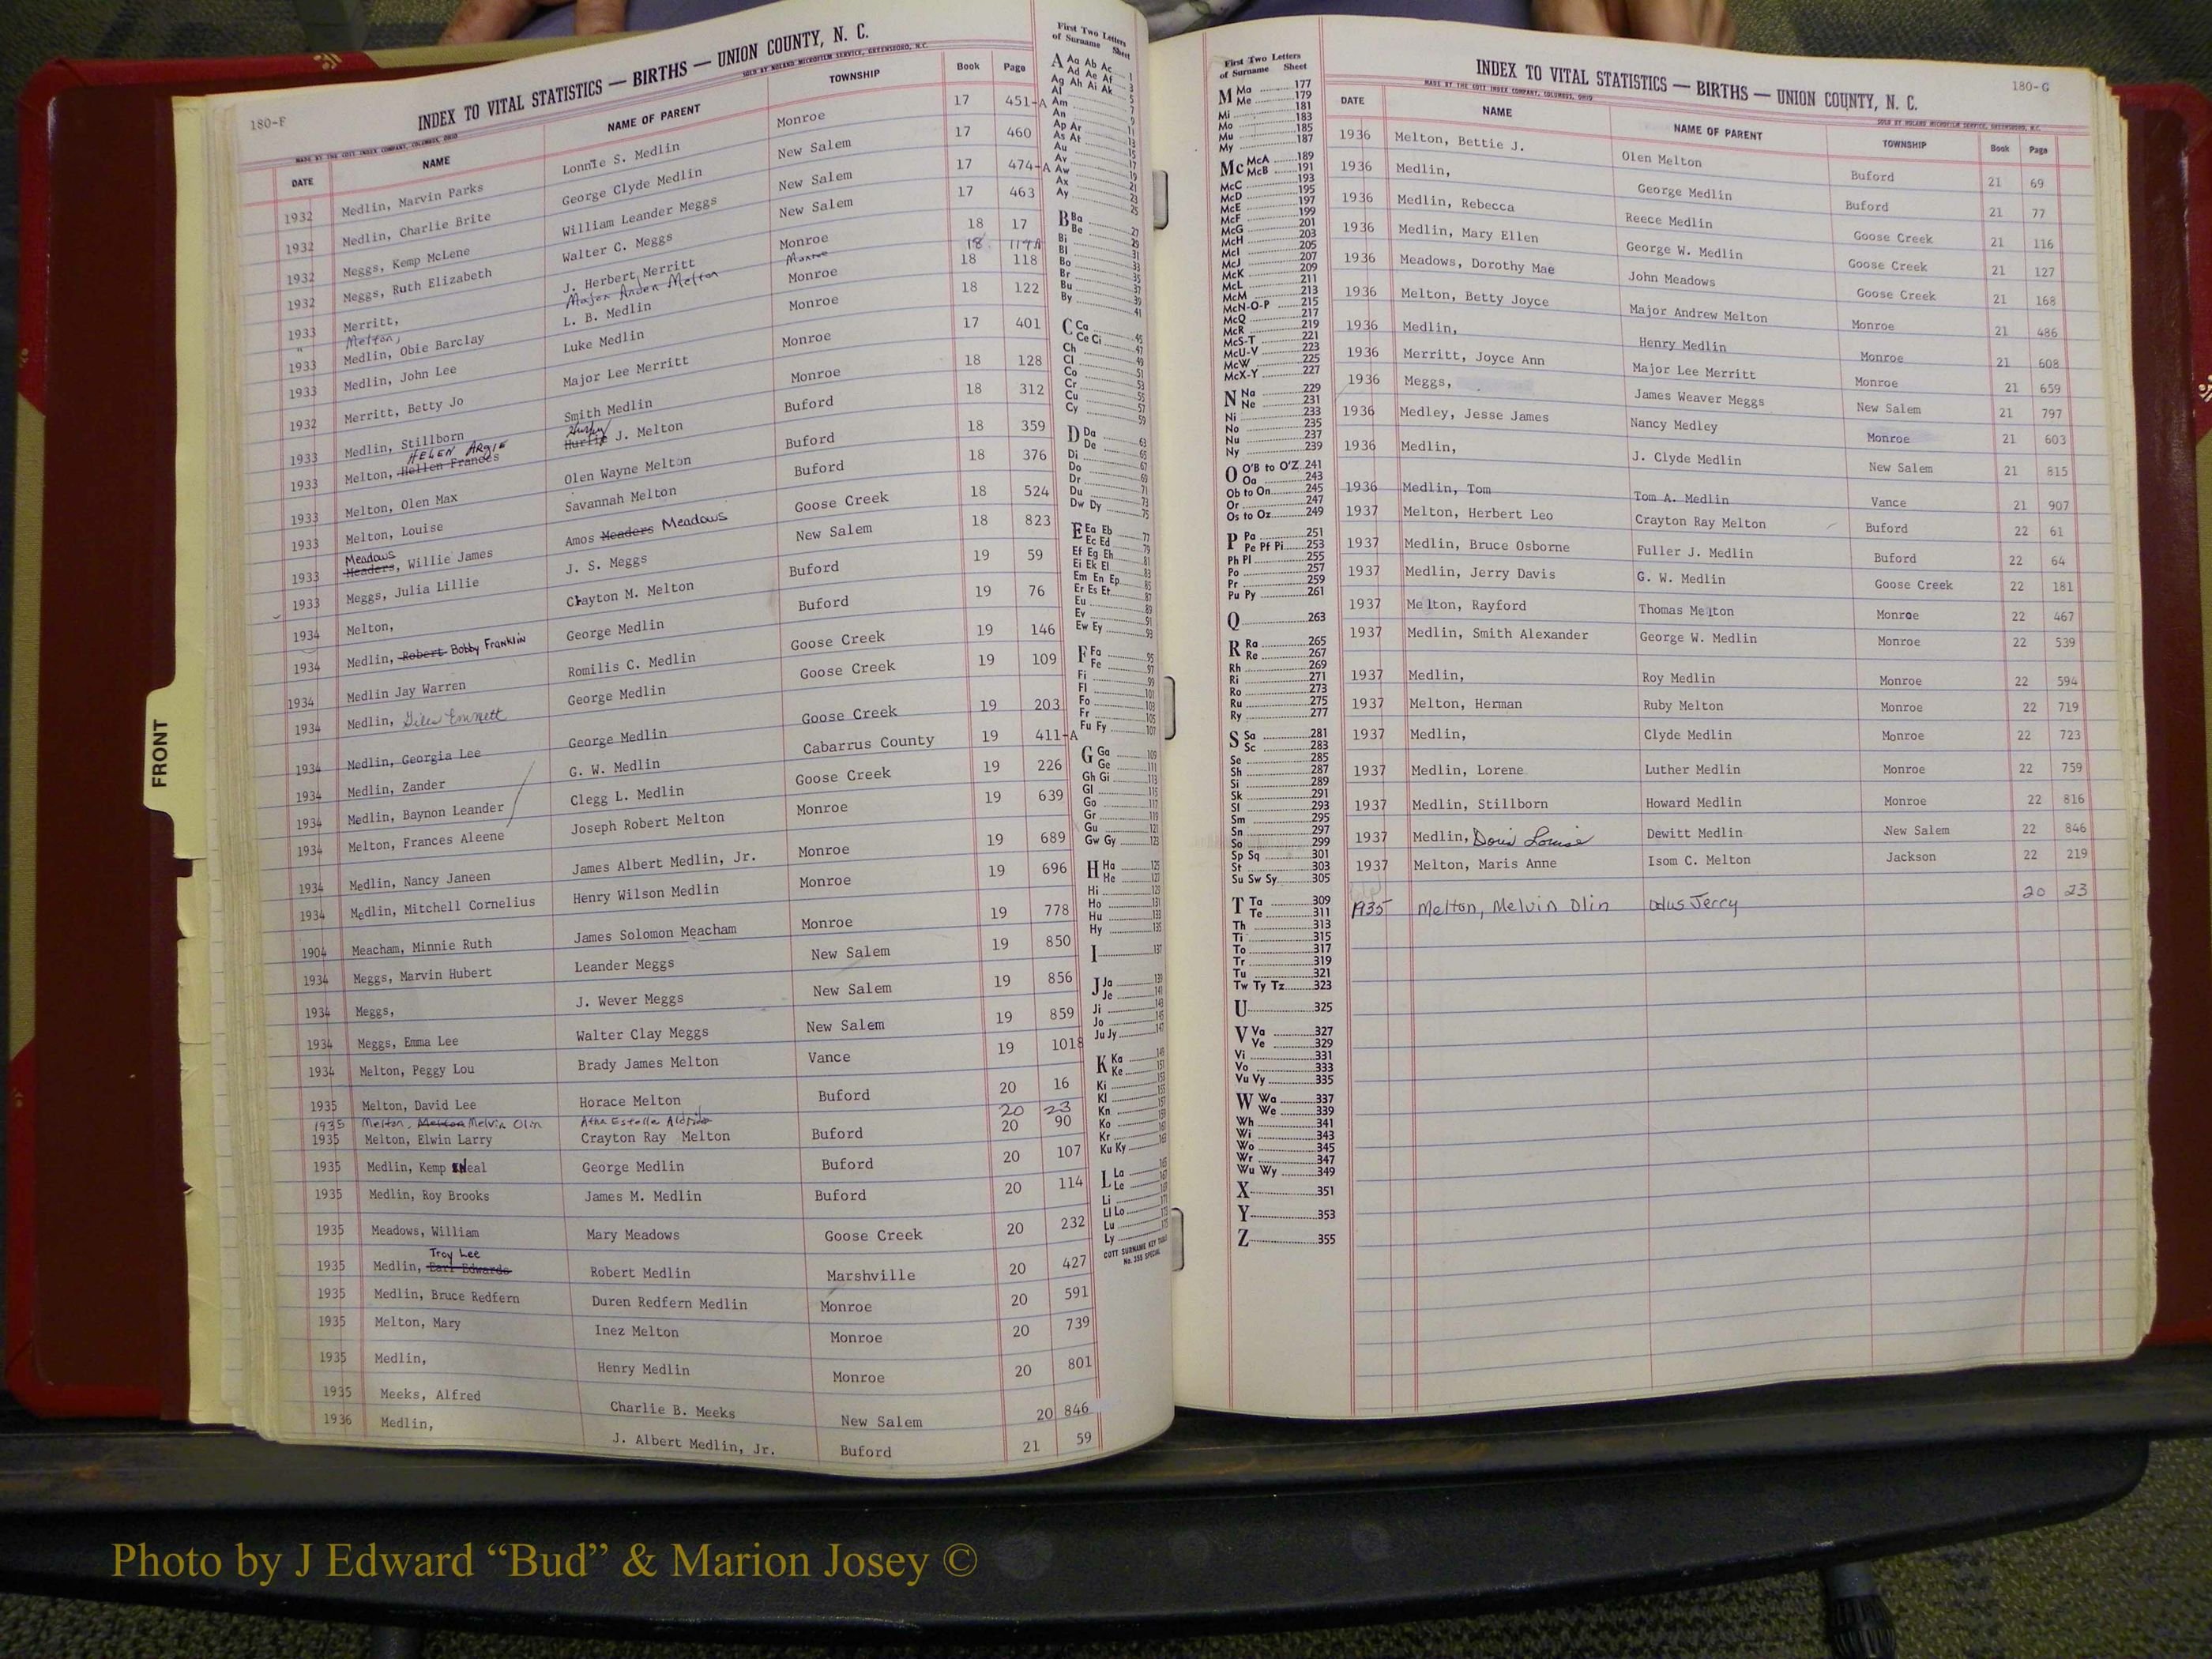 180-F
INDEX TO VITAL STATISTICS — BIRTHS — UNION COUNTY, N. C.
MADE BY THE COTT INDEX COMPANY, COLUMBUS, OHIO SOLD BY NOLAND MICROFILM SERVICE, GREENSBORO, N.C.
DATE NAME NAME OF PARENT TOWNSHIP Book Page
1932 Medlin, Marvin Parks Lonnie S. Medlin Monroe 17 451-A
1932 Medlin, Charlie Brite George Clyde Medlin New Salem 17 460
1932 Meggs, Kemp McLene William Leander Meggs New Salem 17 474-A
1932 Meggs, Ruth Elizabeth Walter C. Meggs New Salem 17 463
1933 Merritt, J. Herbert Merritt Monroe 18 17
" Melton, Major Anden Melton Monroe 18 117A
1933 Medlin, Obie Barclay L. B. Medlin Monroe 18 118
1933 Medlin, John Lee Luke Medlin Monroe 18 122
1932 Merritt, Betty Jo Major Lee Merritt Monroe 17 401
1933 Medlin, Stillborn Smith Medlin Monroe 18 128
1933 Melton, Hellen Frances HELEN ARGIE Hurlie J. Melton Buford 18 312
1933 Melton, Olen Max Olen Wayne Melton Buford 18 359
1933 Melton, Louise Savannah Melton Buford 18 376
1933 Meaders, Meadows Willie James Amos Meaders Meadows Goose Creek 18 524
1933 Meggs, Julia Lillie J. S. Meggs New Salem 18 823
1934 Melton, Clayton M. Melton Buford 19 59
1934 Medlin, Robert Bobby Franklin George Medlin Buford 19 76
1934 Medlin Jay Warren Romilis C. Medlin Goose Creek 19 146
1934 Medlin, Giles Emmett George Medlin Goose Creek 19 109
1934 Medlin, Georgia Lee George Medlin Goose Creek 19 203
1934 Medlin, Zander G. W. Medlin Cabarrus County 19 411-A
1934 Medlin, Baynon Leander Clegg L. Medlin Goose Creek 19 226
1934 Melton, Frances Aleene Joseph Robert Melton Monroe 19 639
1934 Medlin, Nancy Janeen James Albert Medlin, Jr. Monroe 19 689
1934 Medlin, Mitchell Cornelius Henry Wilson Medlin Monroe 19 696
1904 Meacham, Minnie Ruth James Solomon Meacham Monroe 19 778
1934 Meggs, Marvin Hubert Leander Meggs New Salem 19 850
1934 Meggs, J. Wever Meggs New Salem 19 856
1934 Meggs, Emma Lee Walter Clay Meggs New Salem 19 859
1934 Melton, Peggy Lou Brady James Melton Vance 19 1018
1935 Melton, David Lee Horace Melton Buford 20 16
1935 Melton, Melton Melvin Olin Atha Estelle 20 23
1935 Melton, Elwin Larry Crayton Ray Melton Buford 20 90
1935 Medlin, Kemp Neal George Medlin Buford 20 107
1935 Medlin, Roy Brooks James M. Medlin Buford 20 114
1935 Meadows, William Mary Meadows Goose Creek 20 232
1935 Medlin, Earl Edwards Troy Lee Robert Medlin Marshville 20 427
1935 Medlin, Bruce Redfern Duren Redfern Medlin Monroe 20 591
1935 Melton, Mary Inez Melton Monroe 20 739
1935 Medlin, Henry Medlin Monroe 20 801
1935 Meeks, Alfred Charlie B. Meeks New Salem 20 846
1936 Medlin, J. Albert Medlin, Jr. Buford 21 59
First Two Letters
of Surname Sheet
A Aa Ab Ac 1
Ad Ae Af 3
Ag Ah Ai Ak 5
Al
Am
An
Ap Ar 11
As At 13
Au 15
Av 17
Aw 19
Ax 21
Ay 23
25
B Ba 27
Be 29
Bi 31
Bl 33
Bo 35
Br 37
Bu 39
By 41
C Ca 45
Ce Ci 47
Ch 49
Cl 51
Co 53
Cr 55
Cu 57
Cy 59
D Da 63
De 65
Di 67
Do 69
Dr 71
Du 73
Dw Dy 75
E Ea Eb 77
Ec Ed 79
Ef Eg Eh 81
Ei Ek El 83
Em En Ep 85
Er Es Et 87
Eu 89
Ev 91
Ew Ey 93
F Fa 95
Fe 97
Fi 99
Fl 101
Fo 103
Fr 105
Fu Fy 107
G Ga 109
Ge 111
Gh Gi 113
Gl 115
Go 117
Gr 119
Gu 121
Gw Gy 123
H Ha 125
He 127
Hi 129
Ho 131
Hu 133
Hy 135
I 137
J Ja 139
Je 141
Ji 143
Jo 145
Ju Jy 147
K Ka 149
Ke 151
Ki 153
Kl 155
Kn 157
Ko 159
Kr 161
Ku Ky 163
L La 165
Le 167
Li 169
Ll Lo 171
Lu 173
Ly 175
COTT SURNAME KEY TABLE
No. 355 SPECIAL
First Two Letters
of Surname Sheet
M Ma 177
Me 179
Mi 181
Mo 183
Mu 185
My 187
Mc McA 189
McB 191
McC 193
McD 195
McE 197
McF 199
McG 201
McH 203
McI 205
McJ 207
McK 209
McL 211
McM 213
McN-O-P 215
McQ 217
McR 219
McS-T 221
McU-V 223
McW 225
McX-Y 227
N Na 229
Ne 231
Ni 233
No 235
Nu 237
Ny 239
O O'B to O'Z 241
Oa 243
Ob to On 245
Or 247
Os to Oz 249
P Pa 251
Pe Pf Pi 253
Ph Pl 255
Po 257
Pr 259
Pu Py 261
Q 263
R Ra 265
Re 267
Rh 269
Ri 271
Ro 273
Ru 275
Ry 277
S Sa 281
Sc 283
Se 285
Sh 287
Si 289
Sk 291
Sl 293
Sm 295
Sn 297
So 299
Sp Sq 301
St 303
Su Sw Sy 305
T Ta 309
Te 311
Th 313
Ti 315
To 317
Tr 319
Tu 321
Tw Ty Tz 323
U 325
V Va 327
Ve 329
Vi 331
Vo 333
Vu Vy 335
W Wa 337
We 339
Wh 341
Wi 343
Wo 345
Wr 347
Wu Wy 349
X 351
Y 353
Z 355
180-G
INDEX TO VITAL STATISTICS — BIRTHS — UNION COUNTY, N. C.
MADE BY THE COTT INDEX COMPANY, COLUMBUS, OHIO SOLD BY NOLAND MICROFILM SERVICE, GREENSBORO, N.C.
DATE NAME NAME OF PARENT TOWNSHIP Book Page
1936 Melton, Bettie J. Olen Melton Buford 21 69
1936 Medlin, George Medlin Buford 21 77
1936 Medlin, Rebecca Reece Medlin Goose Creek 21 116
1936 Medlin, Mary Ellen George W. Medlin Goose Creek 21 127
1936 Meadows, Dorothy Mae John Meadows Goose Creek 21 168
1936 Melton, Betty Joyce Major Andrew Melton Monroe 21 486
1936 Medlin, Henry Medlin Monroe 21 608
1936 Merritt, Joyce Ann Major Lee Merritt Monroe 21 659
1936 Meggs, James Weaver Meggs New Salem 21 797
1936 Medley, Jesse James Nancy Medley Monroe 21 603
1936 Medlin, J. Clyde Medlin New Salem 21 815
1936 Medlin, Tom Tom A. Medlin Vance 21 907
1937 Melton, Herbert Leo Crayton Ray Melton Buford 22 61
1937 Medlin, Bruce Osborne Fuller J. Medlin Buford 22 64
1937 Medlin, Jerry Davis G. W. Medlin Goose Creek 22 181
1937 Melton, Rayford Thomas Melton Monroe 22 467
1937 Medlin, Smith Alexander George W. Medlin Monroe 22 539
1937 Medlin, Roy Medlin Monroe 22 594
1937 Melton, Herman Ruby Melton Monroe 22 719
1937 Medlin, Clyde Medlin Monroe 22 723
1937 Medlin, Lorene Luther Medlin Monroe 22 759
1937 Medlin, Stillborn Howard Medlin Monroe 22 816
1937 Medlin, Doris Louise Dewitt Medlin New Salem 22 846
1937 Melton, Maris Anne Isom C. Melton Jackson 22 219
1935 Melton, Melvin Olin Odus Jerry 20 23
FRONT
Photo by J Edward “Bud” & Marion Josey ©